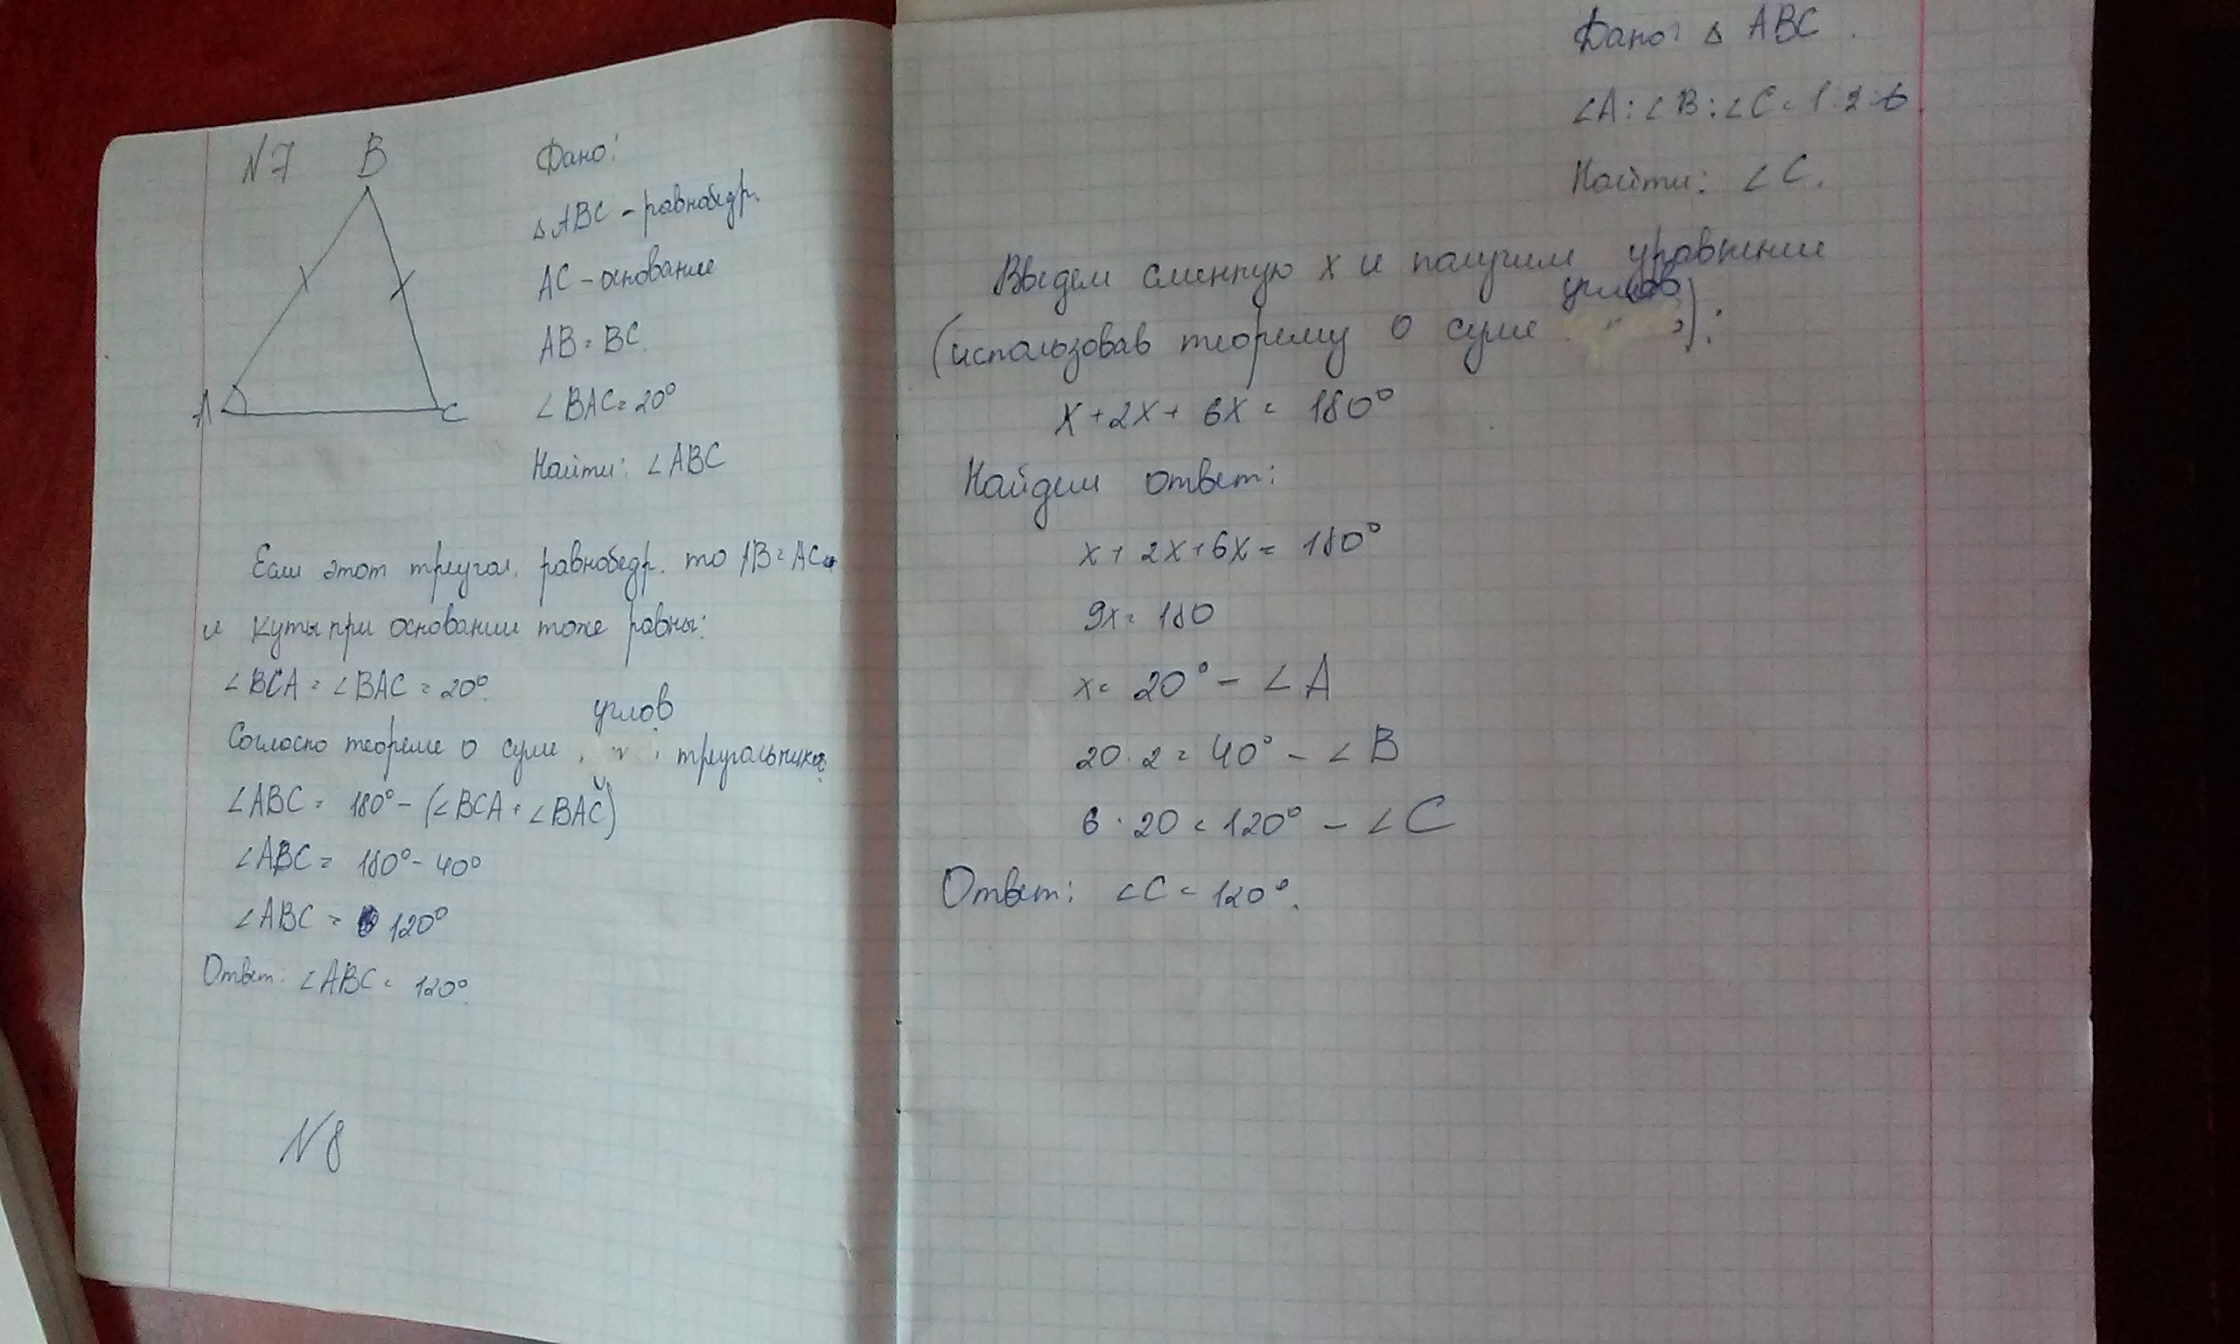 N7
B
A
C
Дано:
△ABC - равнобедр.
AC - основание
AB = BC.
∠BAC = 20°
Найти: ∠ABC
Если этот треугол. равнобедр. то AB = AC
и куты при основании тоже равны:
∠BCA = ∠BAC = 20°.
углов
Согласно теореме о суме треугольника:
∠ABC = 180° - (∠BCA + ∠BAC)
∠ABC = 180° - 40°
∠ABC = 120°
Ответ: ∠ABC = 120°.
N8
Дано: △ ABC.
∠A : ∠B : ∠C = 1:2:6.
Найти: ∠C.
Введем сменную x и получим уравнение
углов
(использовав теорему о суме ):
x + 2x + 6x = 180°
Найдем ответ:
x + 2x + 6x = 180°
9x = 180
x = 20° - ∠A
20 · 2 = 40° - ∠B
6 · 20 = 120° - ∠C
Ответ: ∠C = 120°.